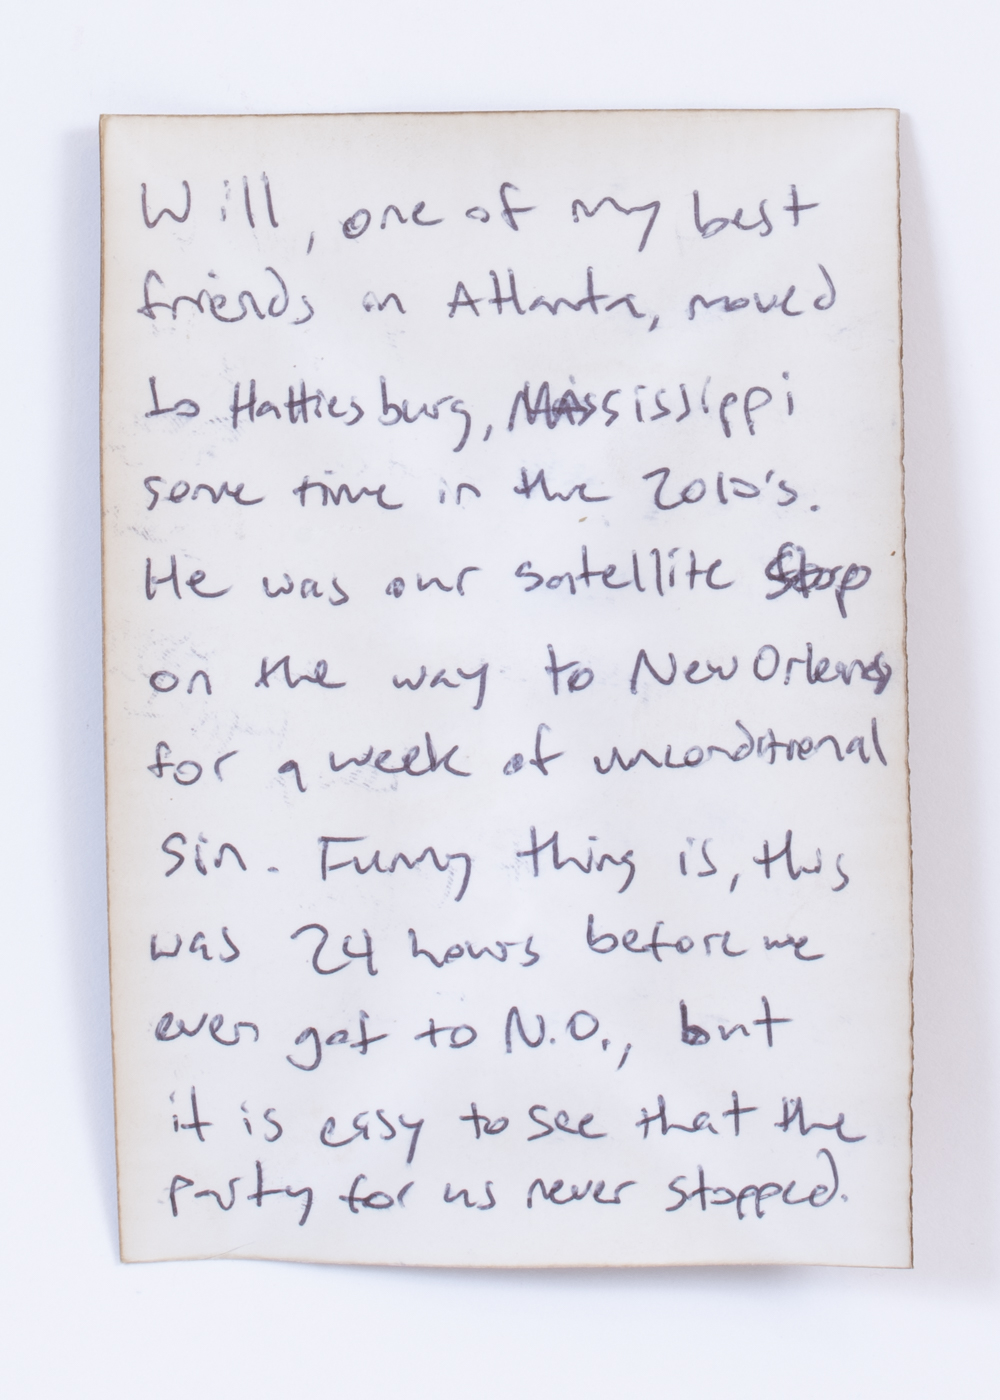 Will, one of my best
friends in Atlanta, moved
to Hattiesburg, Mississippi
some time in the 2010's.
He was our satellite stop
on the way to New Orleans
for a week of unconditional
sin. Funny thing is, this
was 24 hours before we
even got to N.O., but
it is easy to see that the
party for us never stopped.